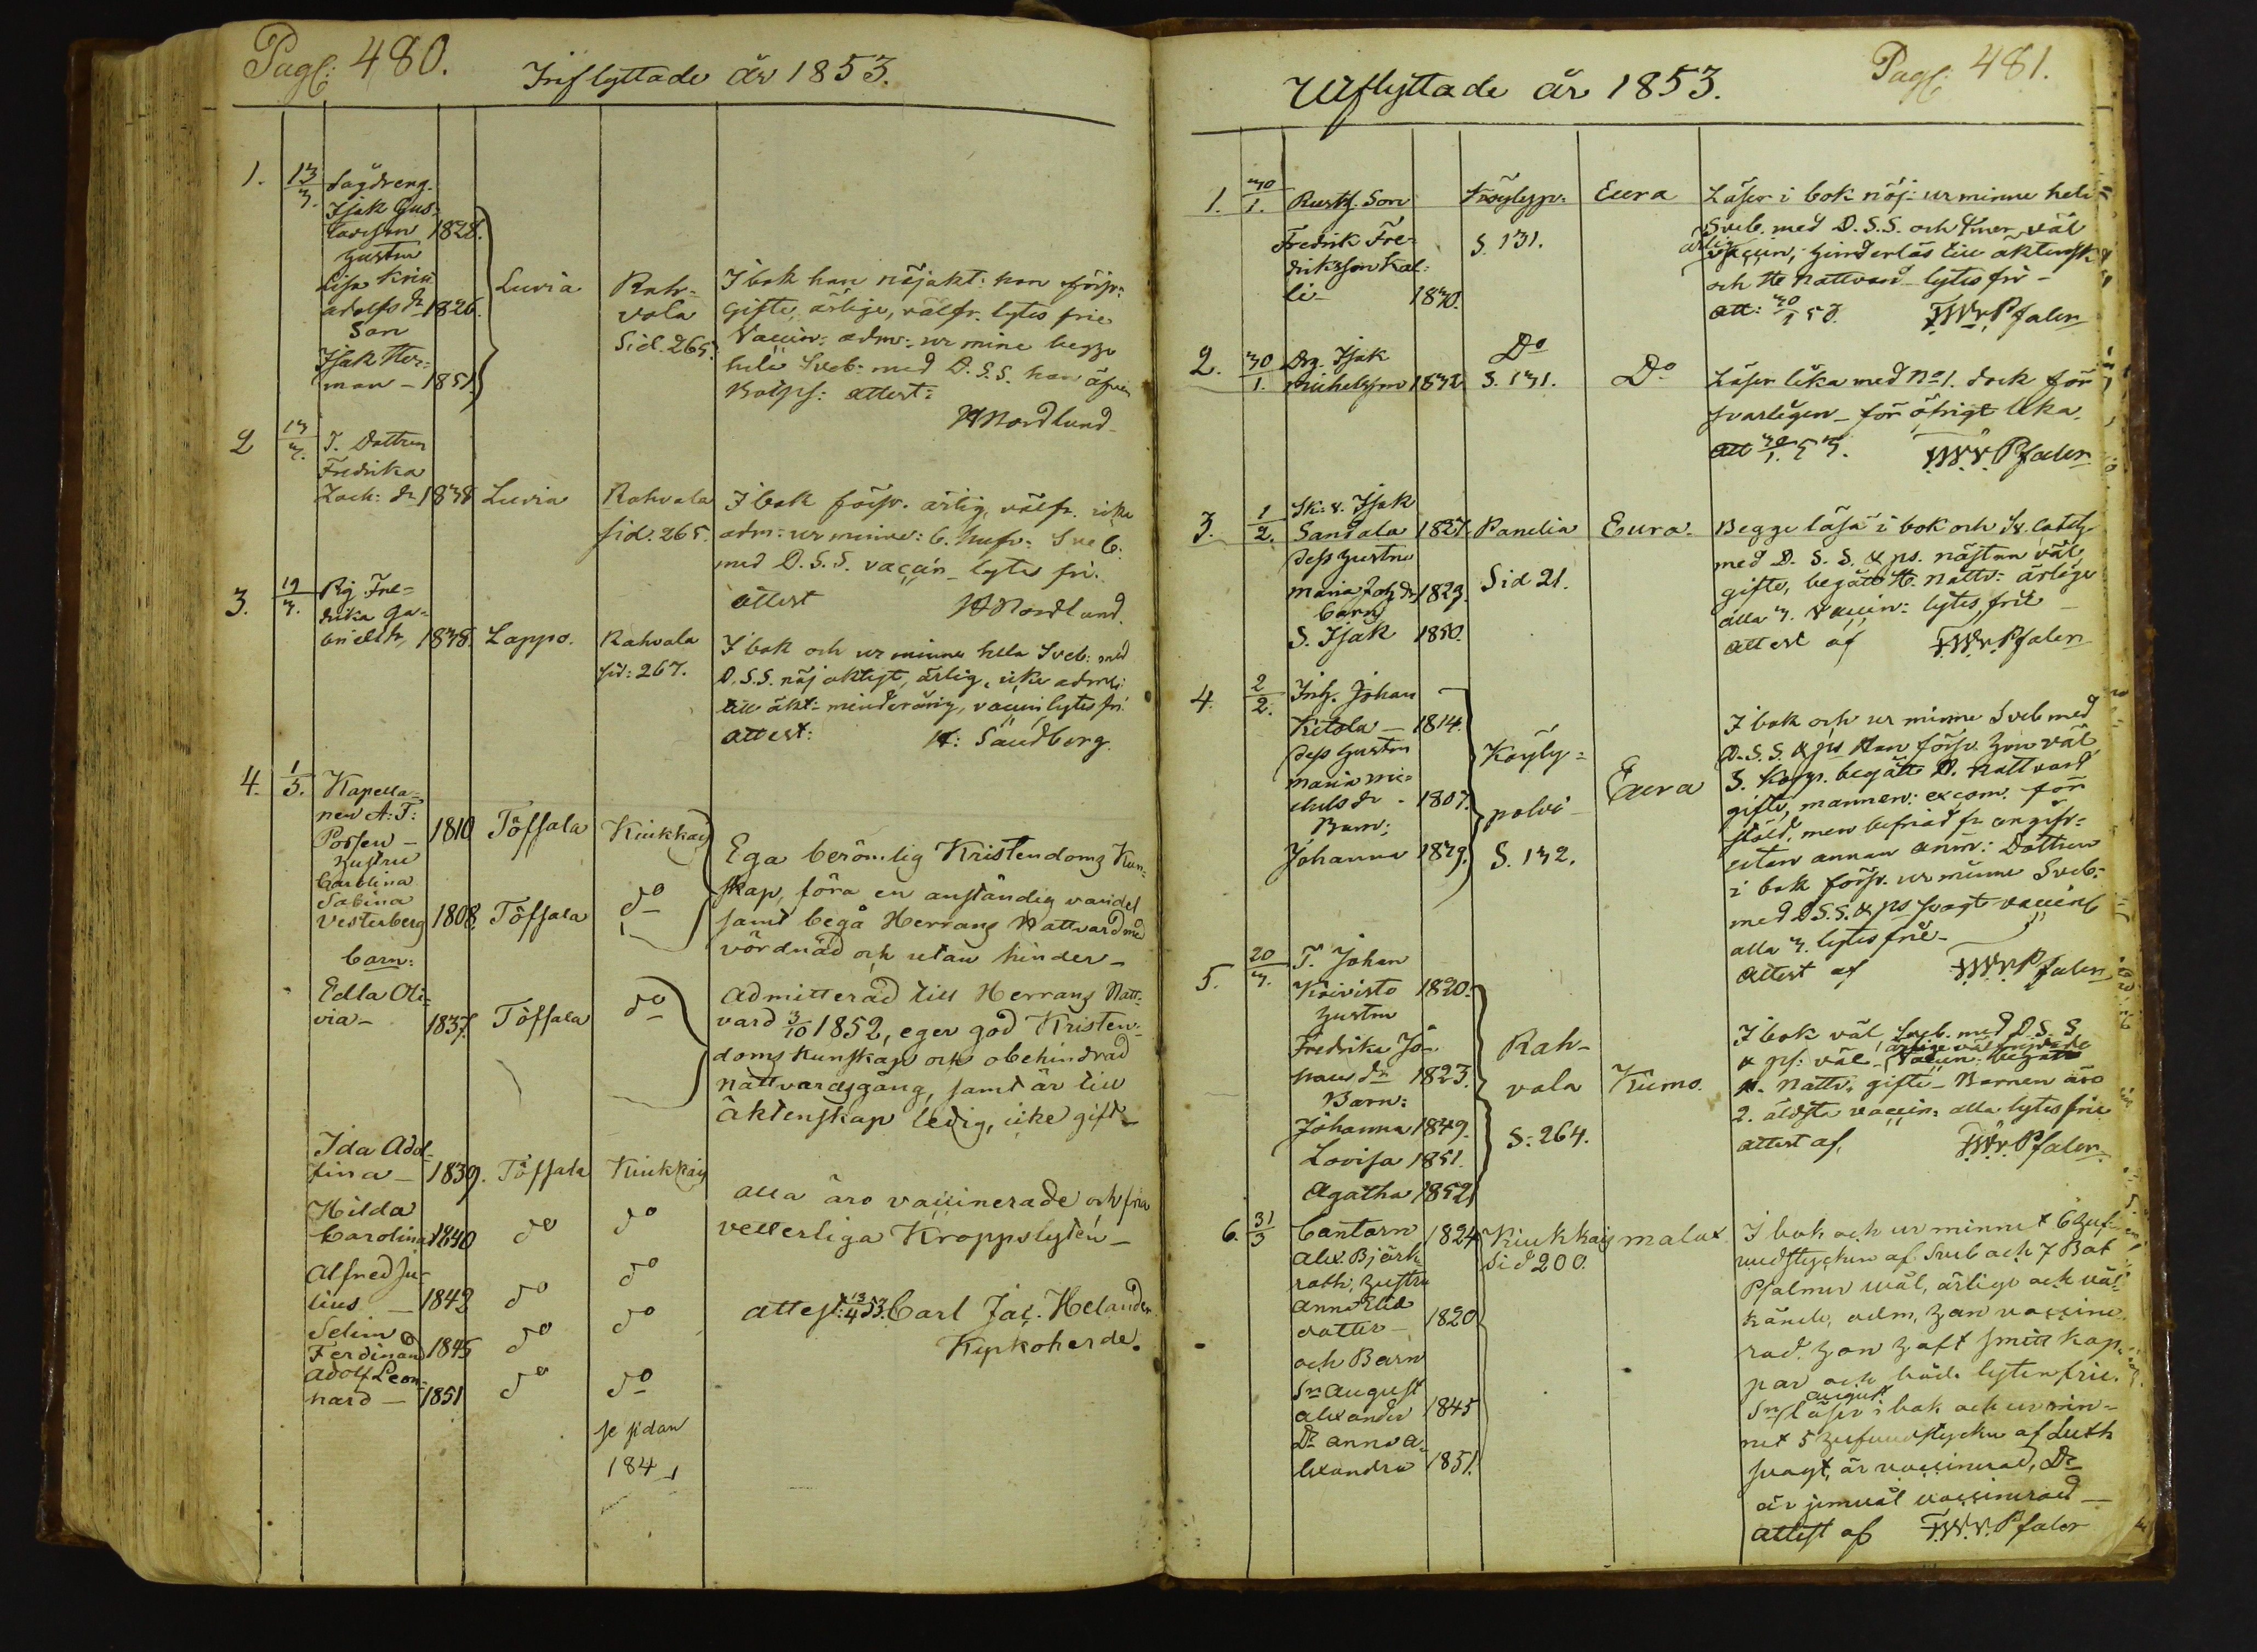 Pag: 480.
Inflyttade år 1853.
1. 13/3. Lagdreng
Isak Gus-
tavsson 1828.
hustru
Lisa Kris
adolfs dr 1826.
Son
Isak Her-
man - 1851.
Luvia
Rah-
vola
Sid. 265.
I bok han nöjakt: hon försv:
gifte, ärlige, välfr. lytes frie
Vaccin: adm: ur mine begge
hela Sveb: med D.S.S. han äfven
attest:
HNordlund
2 13/3. T. Dottren
Fredrika
Zach: dr 1838 Luvia
Rahvala
sid. 265.
I bok försv. ärlig, välfr. icke
adm: ur minne: 6. hufv: Sveb:
med D.S.S. vaccin lytes fri.
attest HNordlund.
3. 19/3. Pig. Fre-
drika Ga-
briels dr, 1838. Lappo.
Rahvala
sid: 267.
I bok och ur minne hela Sveb: med
D.S.S. nöjaktigt, ärlig, icke adm:
till äkt: minderårig, vaccin lytes fri.
attest: H: Sandberg.
4. 1/5. Kapella-
nen A: F:
Porsen - 1810 Töfsala Kiukkais
hustru
Carolina
Sabina
Vesterberg 1808. Töfsala do
Ega berömlig Kristendoms Kun-
skap, föra en anständig vandel
samt begå Herrans Nattvard med
vördnad och utan hinder -
barn:
Edla Oli-
via - 1837. Töfsala do
Admitterad till Herrans Natt-
vard 3/10 1852, eger god Kristen-
doms Kunskap och obehindrad
nattvardsgång, samt är till
äktenskap ledig, icke gift -
Ida Adol-
fina - 1839. Töfsala Kiukkais
Hilda
Carolina 1840 do do
Alfred Ju-
lius - 1842 do do
Selim
Ferdinand 1845 do do
Adolf Leon-
hard - 1851 do do
Alla äro vaccinerade och fria
vetterliga Kroppslyten -
attest: 13/4 53. Carl Jac. Helander
Kyrkoherde.
se sidan
184
Utflyttade år 1853.
Pag: 481.
1. 30/1. Rusth. Son
Fredrik Fre-
driksson Kal-
li - 1830.
Köylyp:
S. 131.
Eura
Läser i bok nöj: ur minne hela
Sveb. med D.S.S. och väl
ärlig
vaccin; hinderlös till äktensk:
och H. Nattvard lytes fri -
att: 30/1 53. FWvPfaler
2. 30/1. Drg. Isak
Michelsson 1832
Do
S. 131.
Do
Läser lika med No 1. dock för
svarligen - för öfrigt lika.
att 30/1. 53. FWvPfaler
3. 1/2. Sk: v. Isak
Sandala 1827.
dess hustru
Maria Joh: dr 1823.
barn
S. Isak 1850.
Panelia
Sid 21.
Eura.
Begge läsa i bok och Sv. Catech
med D.S.S. & ps. nästan väl
gifte, begått H. nattv: ärlige
alla 3. vaccin: lytes frie -
attest af FWvPfaler
4. 2/2. Inh. Johan
Kitola - 1814.
dess hustru
Maria Mi-
chels dr - 1807.
Barn:
Johanna 1839.
Köyly-
polvi
S. 132.
Eura
I bok och ur minne Sveb med
D.S.S. & ps han försv. hon väl
begått D. nattvard
gifte, mannen: excom. för
stöld, men befriad fr angifv:
utan annan anm: Dottren
i bok försv. ur minne Sveb.
med DS.S. & ps svagt vaccin
alla 3. lytes frie -
Attest af FWvPfaler
5. 20/3. T. Johan
Koivisto 1820.
hustru
Fredrika Jo-
hans dr 1823.
Barn:
Johanna 1849.
Lovisa 1851.
Agatha 1852
Rah-
vala
S: 264.
Kumo.
I bok väl, Sveb. med D.S.S
& ps: väl vaccin: begått
H. nattv. gifte - Barnen äro
2. äldsta vaccin: alla lytes frie
attest af FWvPfaler
6. 31/3 Cantorn 1824
Alex. Björk-
roth; hustru
Anna Elis
dotter - 1820
och Barn
Sn August
Alexander 1845
Dr Anna A-
lexandra 1851.
Kiukkais
Sid 200.
malax.
I bok och ur minnet 6 huf-
vudstycken af Sveb och 7 Bot
Psalmer wäl, ärlige och väl-
kände, adm, han vaccine-
rad. hon haft smitt kop-
por och både lyten frie.
Sn August läser i bok och ur min-
net 5 hufvudstycken af Luth
svagt, är vaccinerad, Dr
är jemväl vaccinerad -
attest af FWvPfaler